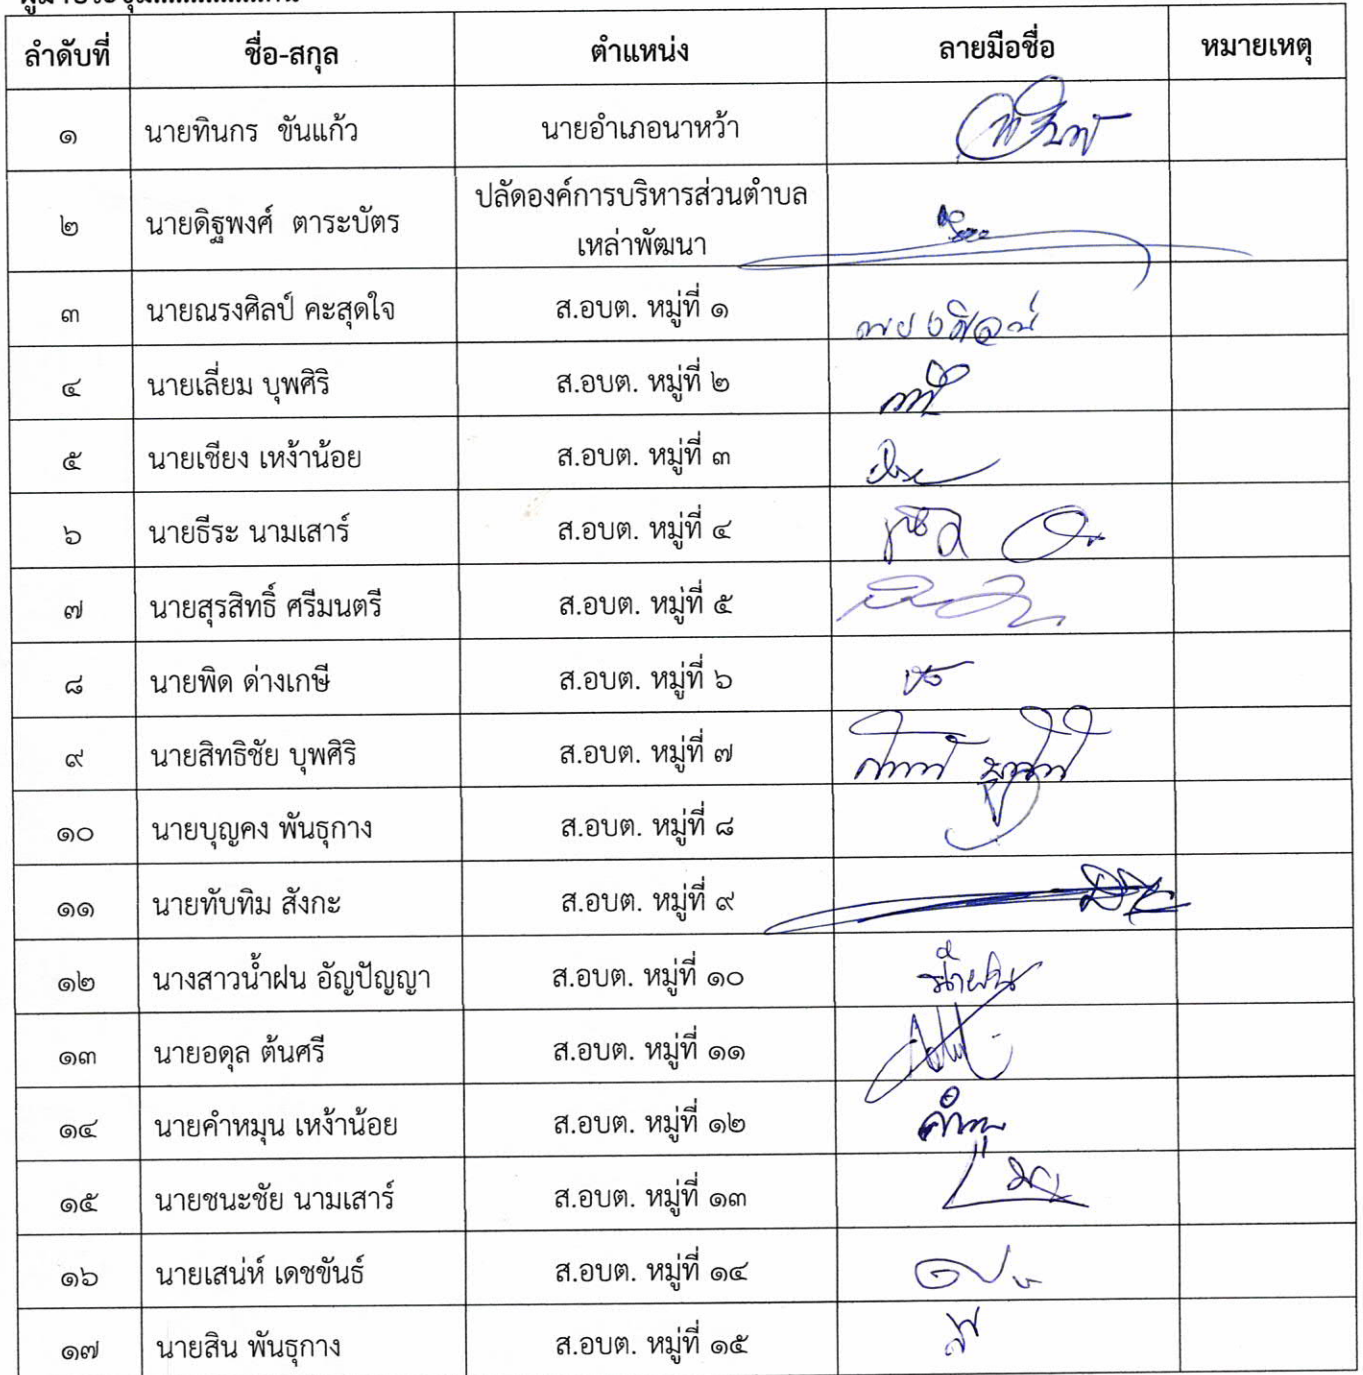 ลำดับที่ ชื่อ-สกุล ตำแหน่ง ลายมือชื่อ หมายเหตุ
๑ นายทินกร ขันแก้ว นายอำเภอนาหว้า
๒ นายดิฐพงศ์ ตาระบัตร ปลัดองค์การบริหารส่วนตำบล
เหล่าพัฒนา
๓ นายณรงศิลป์ คะสุดใจ ส.อบต. หมู่ที่ ๑
๔ นายเลี่ยม บุพศิริ ส.อบต. หมู่ที่ ๒
๕ นายเชียง เหง้าน้อย ส.อบต. หมู่ที่ ๓
๖ นายธีระ นามเสาร์ ส.อบต. หมู่ที่ ๔
๗ นายสุรสิทธิ์ ศรีมนตรี ส.อบต. หมู่ที่ ๕
๘ นายพิด ด่างเกษี ส.อบต. หมู่ที่ ๖
๙ นายสิทธิชัย บุพศิริ ส.อบต. หมู่ที่ ๗
๑๐ นายบุญคง พันธุกาง ส.อบต. หมู่ที่ ๘
๑๑ นายทับทิม สังกะ ส.อบต. หมู่ที่ ๙
๑๒ นางสาวน้ำฝน อัญปัญญา ส.อบต. หมู่ที่ ๑๐ น้ำฝน
๑๓ นายอดุล ต้นศรี ส.อบต. หมู่ที่ ๑๑
๑๔ นายคำหมุน เหง้าน้อย ส.อบต. หมู่ที่ ๑๒
๑๕ นายชนะชัย นามเสาร์ ส.อบต. หมู่ที่ ๑๓
๑๖ นายเสน่ห์ เดชขันธ์ ส.อบต. หมู่ที่ ๑๔
๑๗ นายสิน พันธุกาง ส.อบต. หมู่ที่ ๑๕